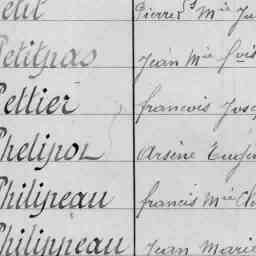 Petit Pierre Mie Ju
Petitpas Jean Mie Fois
Pettier francois Jose
Phelipot Arsène Eugèn
Philipeau francis Mie Ch
Philippeau Jean Marie